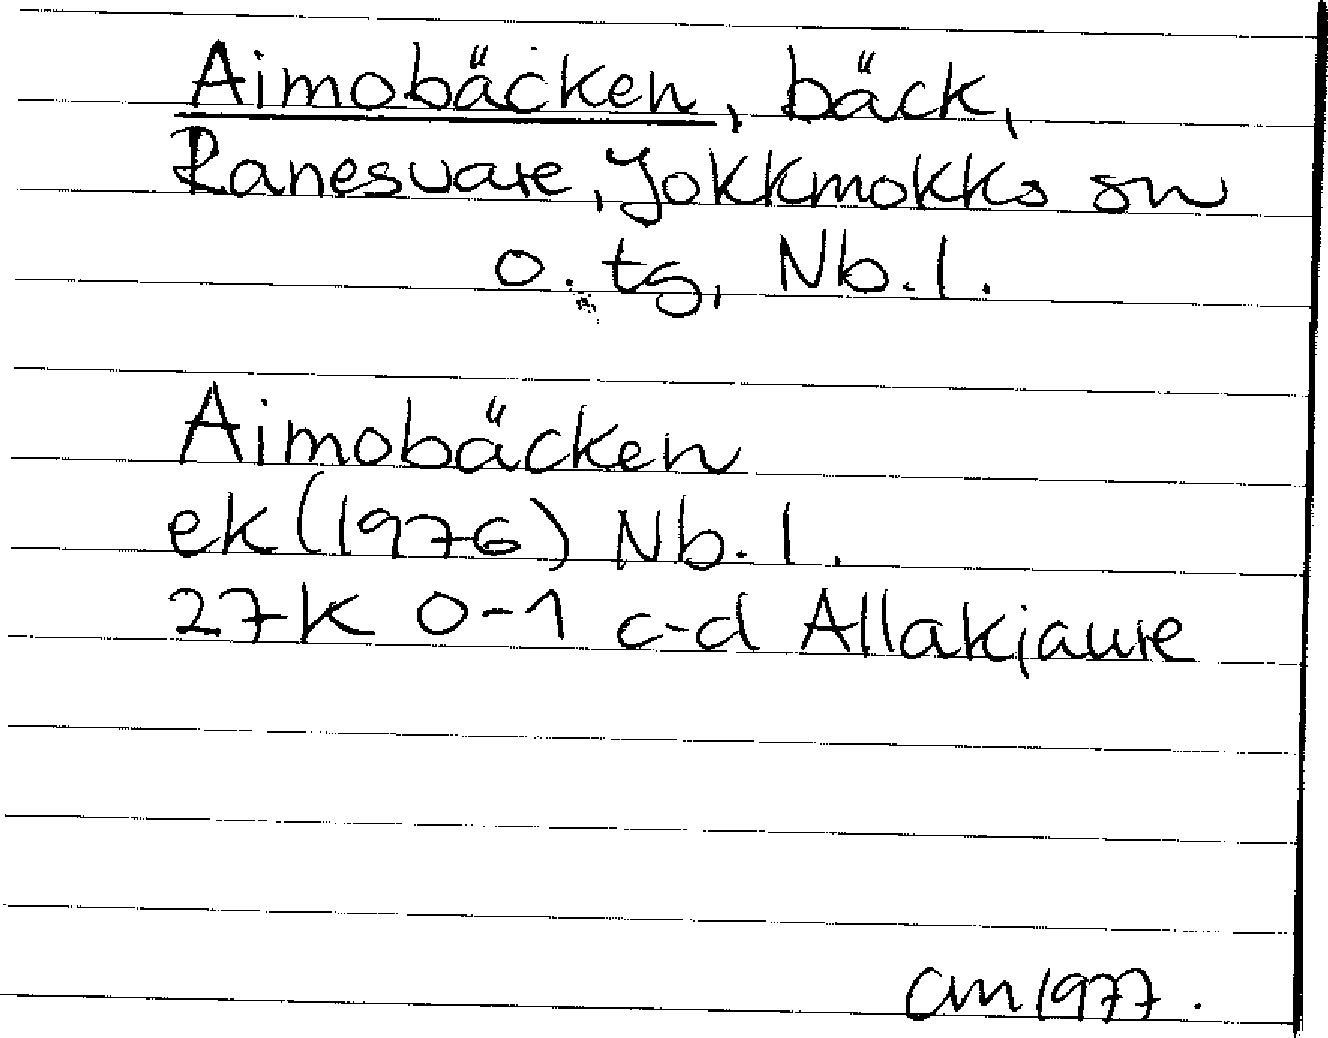 Aimobäcken, bäck,
Ranesvare, Jokkmokks sn
o. ts, Nb. l.
Aimobäcken
ek (1976) Nb. l.
27K 0-1 c-d Allakjaure
CM 1977.